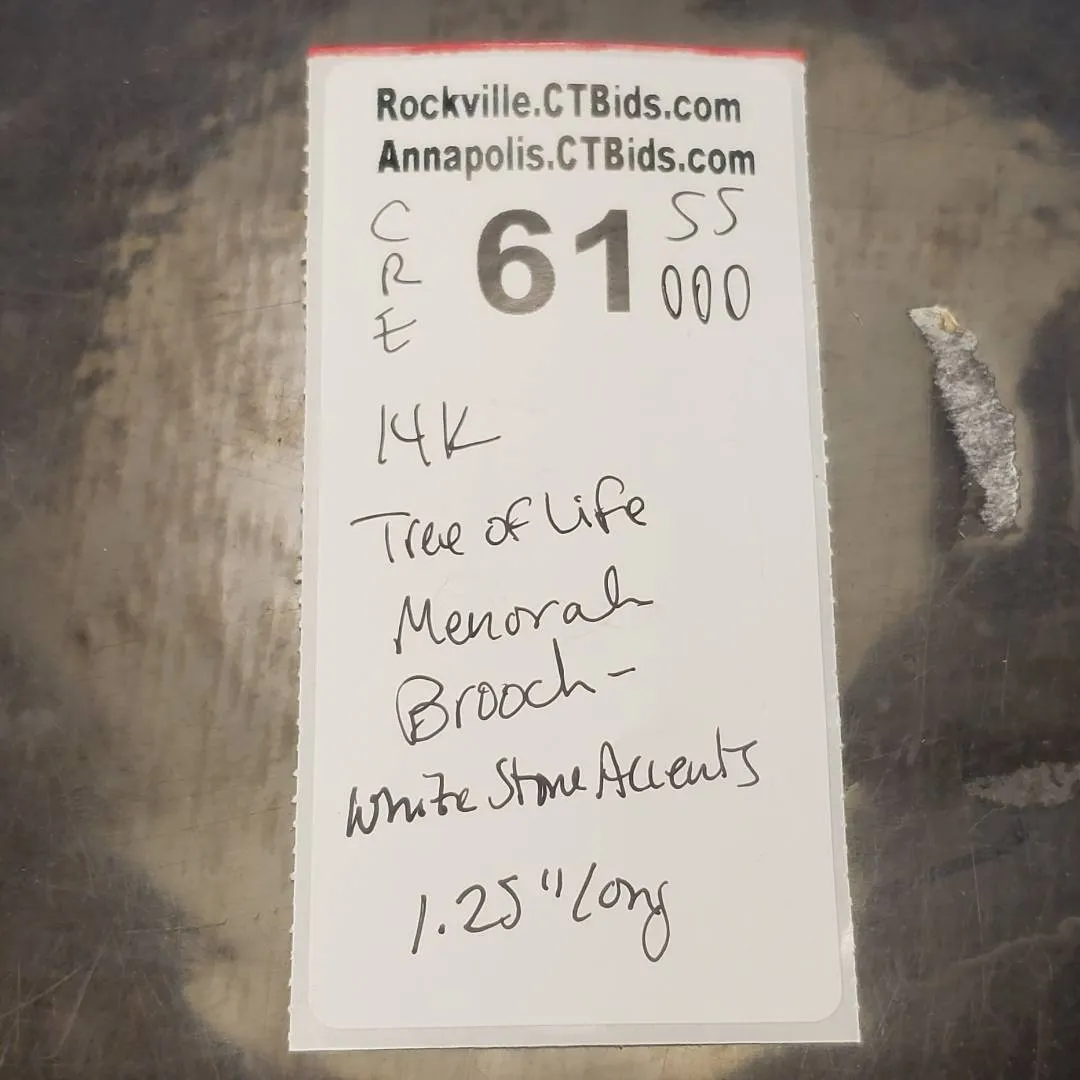 Rockville.CTBids.com
Annapolis.CTBids.com
C
R
E
61
SS
000
14K
Tree of Life
Menorah
Brooch-
White Stone Accents
1.25" long